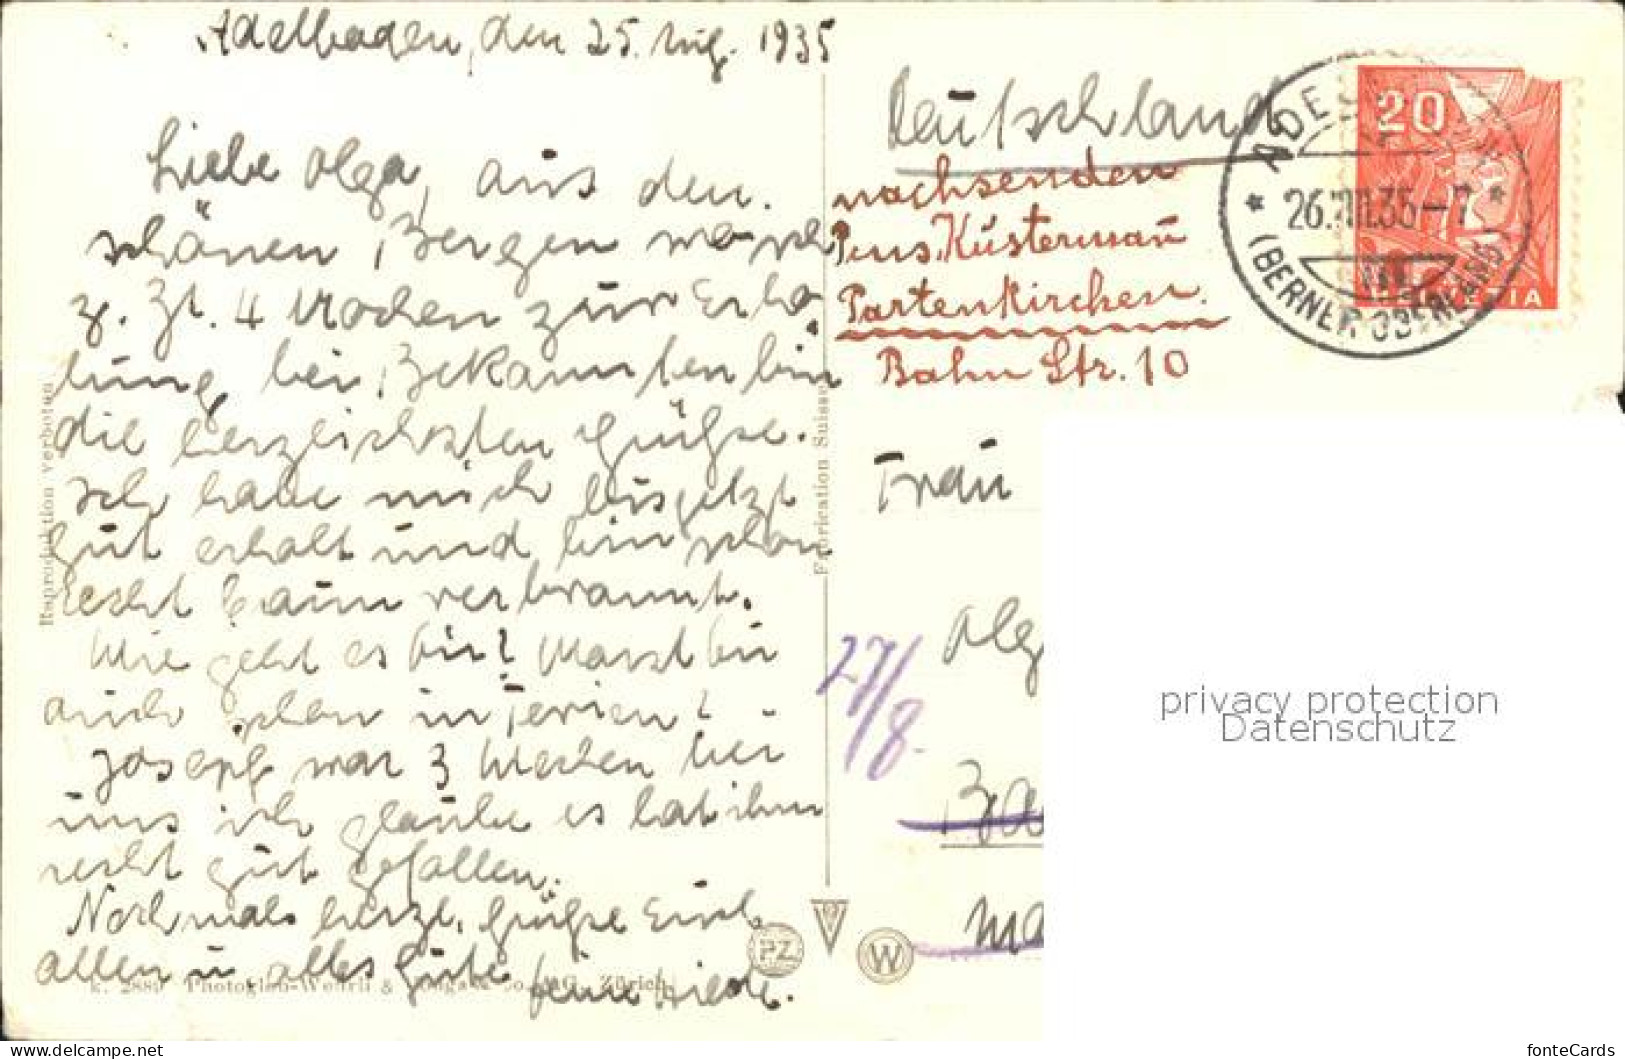 Adelboden, den 25. Aug. 1935
Liebe Olga, aus den
schönen Bergen
z. Zt. 4 Wochen zur Erho
lung bei Bekannten
die herzlichsten Grüße.
Ich habe mich bis jetzt
gut erholt und bin schon
recht braun verbrannt.
Wie geht es Dir? Warst Du
auch schon in Ferien?
Josepf war 3 Wochen bei
uns ich glaube es hat ihm
recht gut gefallen.
Nochmals herzl. Grüße Euch
allen u. alles Gute
Deutschland
nachsenden
Pens. Küstermann
Partenkirchen.
Bahn Str. 10
Frau
Olg
27/8.
Ba
Ma
20
HELVETIA
ADELBODEN
26.VIII.35-7
(BERNER OBERLAND)
Reproduktion verboten
Fabrication Suisse
PZ
W
K. 2880 Photoglob-Wehrli & Vouga & Co. A.G. Zürich
privacy protection
Datenschutz
www.delcampe.net
fonteCards